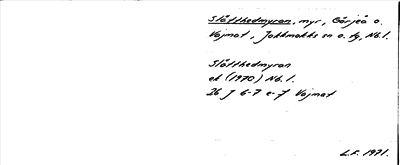 Slåtthedmyran, myr, Görjeå o.
Vajmat, Jokkmokks sn o. tg, Nb l.
Slåtthedmyran
ek (1970) Nb l.
26 J 6-7 e-f Vajmat
L.F. 1971.